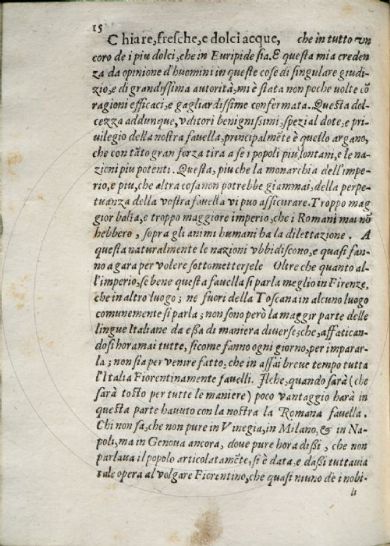 15
Chiare, fresche, e dolci acque, che in tutto vn
coro de i piu dolci, che in Euripide sia. E questa mia creden
za da opinione d'huomini in queste cose di singulare giudi-
zio, e di grandissima autorità, mi è stata non poche volte cõ
ragioni efficaci, e gagliardissime confermata. Questa dol-
cezza addunque, Vditori benignissimi, spezial dote, e pri-
uilegio della nostra fauella, principalmẽte è quello argano,
che con tãto gran forza tira a se i popoli piu lontani, e le na-
zioni piu potenti. Questa, piu che la monarchia dell'impe-
rio, e piu, che altra cosa non potrebbe giammai, della perpe-
tuanza della vostra fauella vi puo assicurare. Troppo mag
gior balia, e troppo maggiore imperio, che i Romani mai nõ
hebbero, sopra gli animi humani ha la dilettazione. A
questa naturalmente le nazioni vbbidiscono, e quasi fan-
no a gara per volere sottometterjele Oltre che quanto al-
l'imperio, se bene questa fauella si parla meglio in Firenze,
che in altro luogo; ne fuori della Toscana in alcuno luogo
comunemente si parla; non sono però la maggir parte delle
lingue Italiane da essa di maniera diuerse; che, affatican-
dosi horamai tutte, si come fanno ogni giorno, per imparar-
la; non sia per venire fatto, che in assai breve tempo tutta
l'Italia Fiorentinamente fauelli. Ilche, quando sarà (che
sarà tosto per tutte le maniere) poco vantaggio harà in
questa parte hauuto con la nostra la Romana fauella.
Chi non sa, che non pure in Vinegia, in Milano, & in Na-
poli, ma in Genoua ancora, doue pure hora dissi, che non
parlaua il popolo articolatamẽte, si è data, e dassi tuttauia
tale opera al volgare Fiorentino, che quasi niuno de i nobi-
li